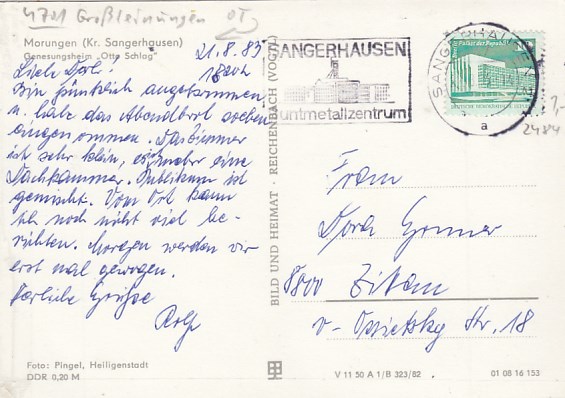 4701 Großleinungen OT
Morungen (Kr. Sangerhausen)
Genesungsheim "Otto Schlag"
21.8.83
1800h
Bin pünktlich angekommen
u. habe das Abendbrot soeben
eingenommen. Das Zimmer
ist sehr klein, eher eine
Dachkammer. Publikum ist
gemischt. Vom Ort kann
ich noch nicht viel be-
richten. Morgen werden wir
erst mal gewogen.
Herzliche Grüße
Rolf
Foto: Pingel, Heiligenstadt
DDR 0,20 M
BILD UND HEIMAT · REICHENBACH (VOGTL)
SANGERHAUSEN
Buntmetallzentrum
SANGERHAUSEN
a
Palast der Republik
1,-
2484
Frau
Dora
8800 Zittau
v-Ossietzky Str. 18
V 11 50 A 1/B 323/82
01 08 16 153